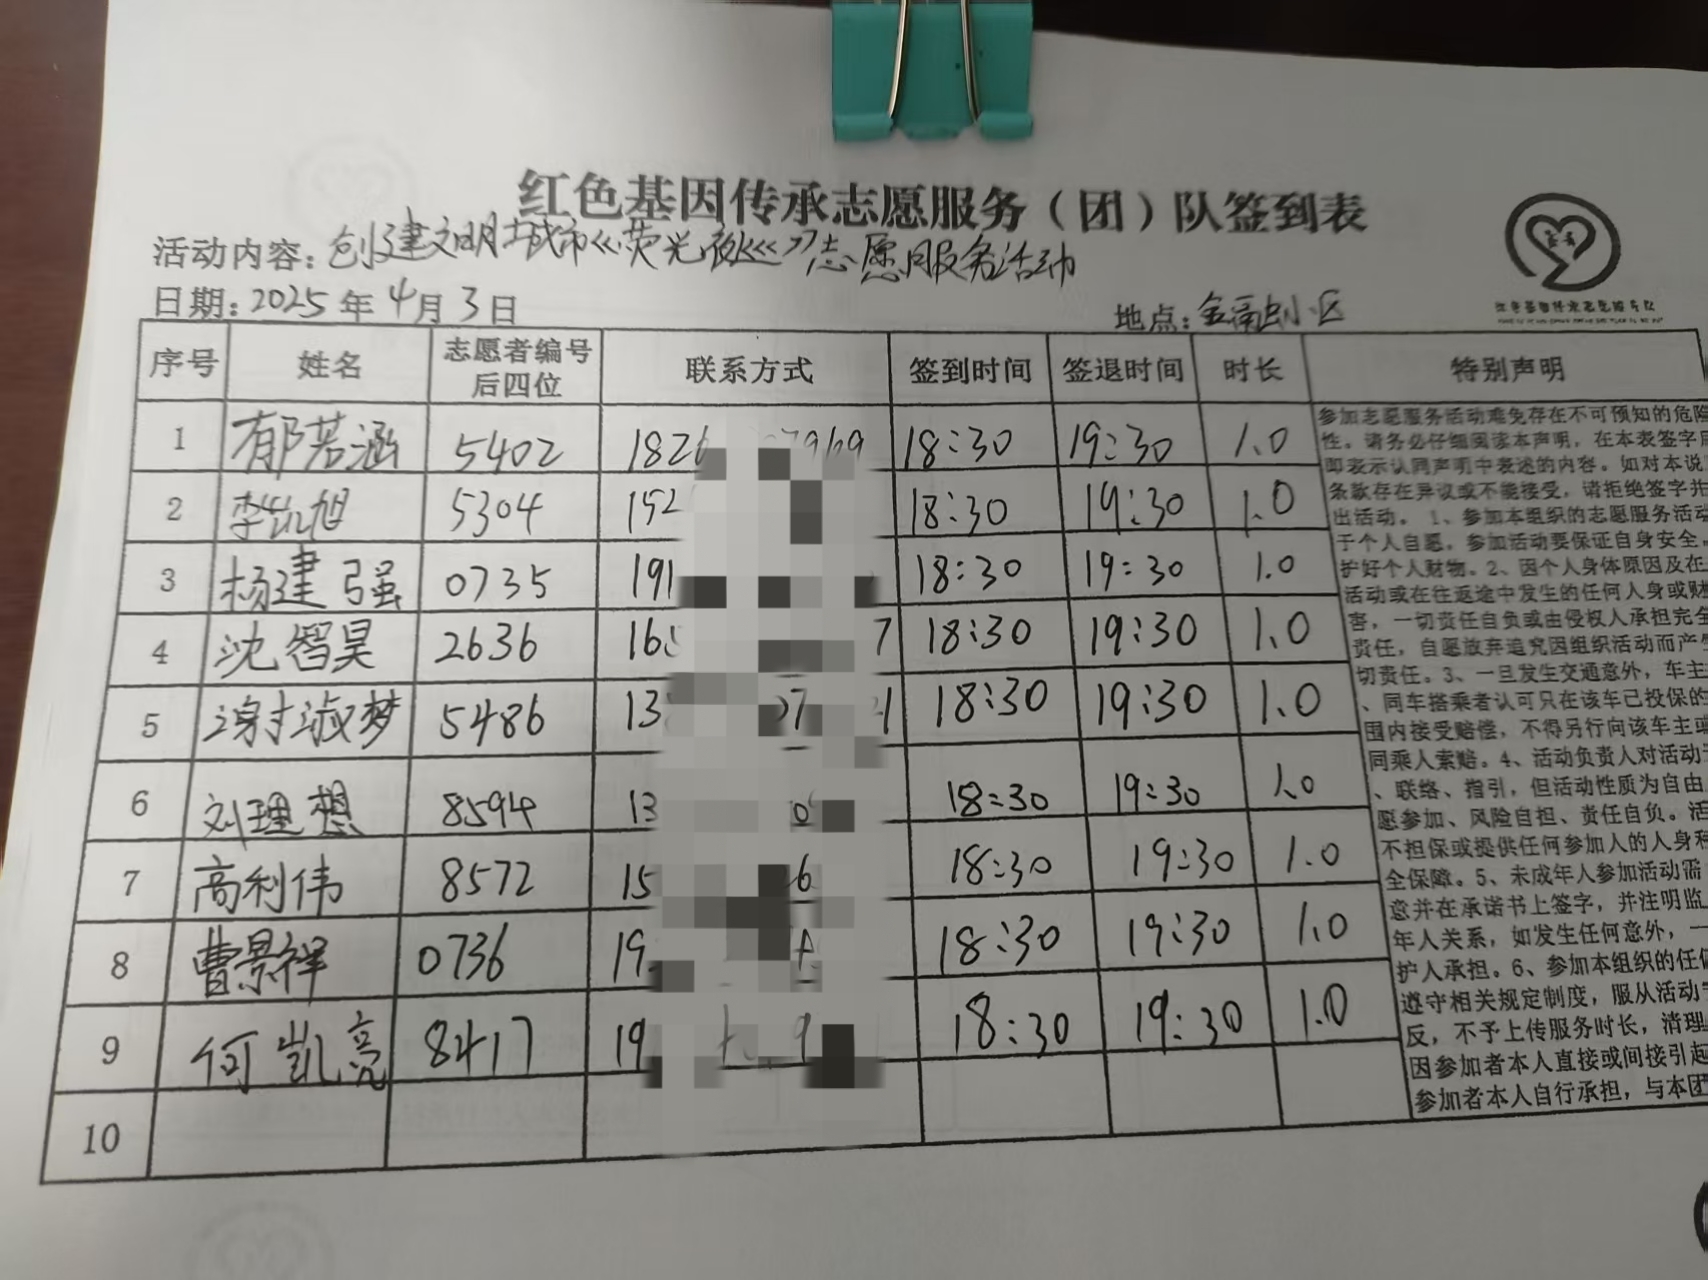 红色基因传承志愿服务（团）队签到表
活动内容：创建文明城市《荧光夜巡》志愿服务活动
日期：2025年4月3日
地点：小区
序号 姓名 志愿者编号后四位 联系方式 签到时间 签退时间 时长 特别声明
1 郁若涵 5402 182 7969 18:30 19:30 1.0
2 李凯旭 5304 152 18:30 19:30 1.0
3 杨建强 0735 191 18:30 19:30 1.0
4 沈智昊 2636 16 7 18:30 19:30 1.0
5 谢淑梦 5486 13 18:30 19:30 1.0
6 刘理想 8594 13 18:30 19:30 1.0
7 高利伟 8572 15 6 18:30 19:30 1.0
8 曹景祥 0736 19 18:30 19:30 1.0
9 何凯亮 8417 19 9 18:30 19:30 1.0
10
参加志愿服务活动难免存在不可预知的危险
性，请务必仔细阅读本声明，在本表签字
即表示认同声明中表述的内容。如对本说
条款存在异议或不能接受，请拒绝签字并
出活动。1、参加本组织的志愿服务活动
于个人自愿，参加活动要保证自身安全，
护好个人财物。2、因个人身体原因及在
活动或在往返途中发生的任何人身或财
害，一切责任自负或由侵权人承担完全
责任，自愿放弃追究因组织活动而产生
切责任。3、一旦发生交通意外，车主
、同车搭乘者认可只在该车已投保的
围内接受赔偿，不得另行向该车主或
同乘人索赔。4、活动负责人对活动
、联络、指引，但活动性质为自由
愿参加、风险自担、责任自负。活
不担保或提供任何参加人的人身和
全保障。5、未成年人参加活动需
意并在承诺书上签字，并注明监
年人关系，如发生任何意外，一
护人承担。6、参加本组织的任何
遵守相关规定制度，服从活动
反，不予上传服务时长，清理
因参加者本人直接或间接引起
参加者本人自行承担，与本团